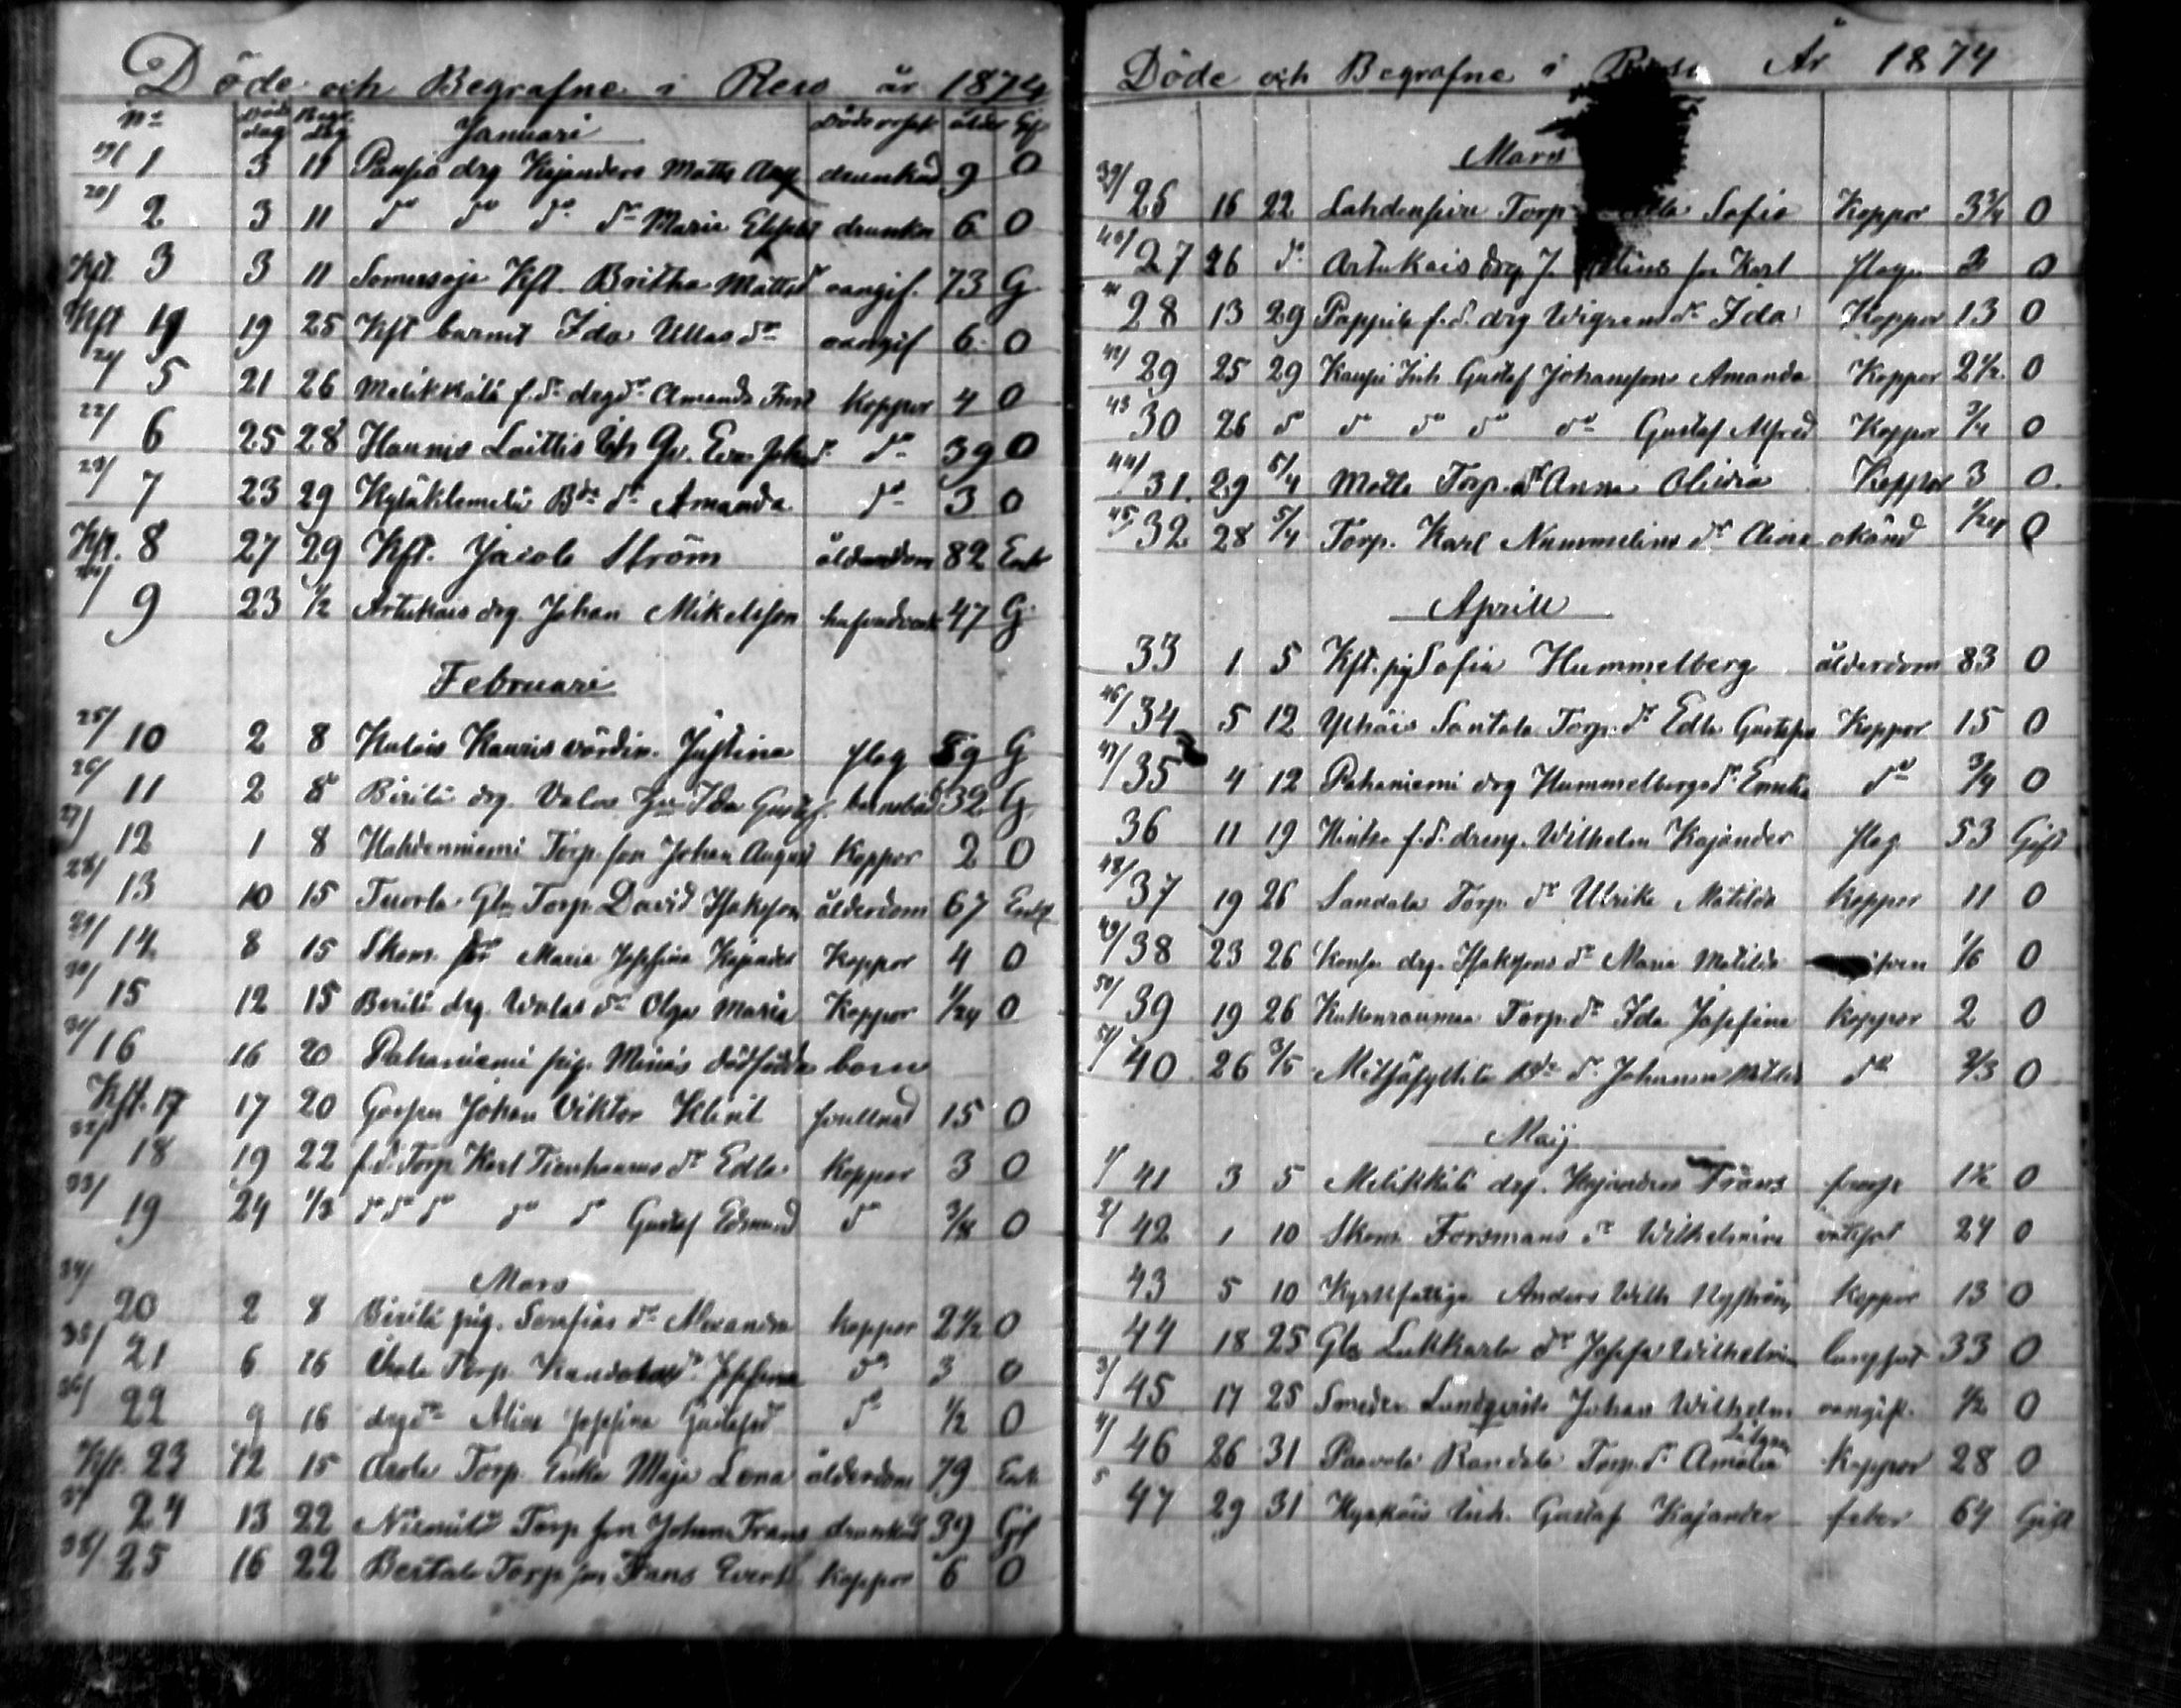 Döde och Begrafne i Reso år 1874
No Död dag Begr. dag Januari Dödsorsak ålder Gift
19/ 1 3 11 drg Kajanders Matts Aug drunknad 9 0
20/ 2 3 11 do do do do Maria Elisabet drunkn 6 0
Kft 3 3 11 Somersoja Kft. Britha Mattsd oangif. 73 G
Kft 4 19 25 Kft barnet Ida Ullasdr oangif 6 0
21/ 5 21 26 Melikkälä f.d. drg dr Amanda Koppor 4 0
22/ 6 25 28 Haunis Laittis Inh Eva Johsd do 39 0
23/ 7 23 29 Kyläklemelä Bde dr Amanda do 3 0
Kft. 8 27 29 Kft. Jacob Ström ålderdom 82 Enk
24/ 9 23 1/2 Artukais drg. Johan Mikelsson hufvudvärk 47 G
Februari
25/ 10 2 8 Kaunis värdin. Justina slag 59 G
26/ 11 2 8 Birilä drg. Ida Gustafs. barnsäd 32 G
27/ 12 1 8 Hahdenniemi Torp. son Johan August Koppor 2 0
28/ 13 10 15 Tuorla Gla Torp. David Isaksson ålderdom 67 Enkl
29/ 14 8 15 Skom. dr Maria Josefina Kajander Koppor 4 0
30/ 15 12 15 Birilä drg. Walas dr Olga Maria Koppor 1/24 0
31/ 16 16 20 Pahaniemi pig. Minas dödfödda barn
Kft. 17 17 20 Gossen Johan Viktor svullnad 15 0
32/ 18 19 22 f.d. Torp Karl Tienhaaras dr Edla Koppor 3 0
33/ 19 24 1/3 do do do do do Gustaf Edmund do 3/4 0
Mars
34/ 20 2 8 Birilä pig. Serafias dr Alexandra koppor 2 1/2 0
35/ 21 6 16 Torp. Josefina do 3 0
36/ 22 9 16 drg dr Alina Josefina Gustafsd do 1/2 0
Kft. 23 12 15 Arola Torp. Enka Maja Lena ålderdom 79 Enk
37/ 24 13 22 Torp son Johan Frans drunknad 39 Gift
38/ 25 16 22 Bestale Torp son Frans Evert koppor 6 0
Döde och Begrafne i Reso År 1874
Mars
39/ 26 16 22 Lahdenperä Torp Sofia Koppor 3 3/4 0
40/ 27 26 do Artukais drg. J. son Karl slag 2 0
41 28 13 29 Pappila f.d. drg Wigren dr Ida Koppor 13 0
42/ 29 25 29 Inh Gustaf Johanssons Amanda Koppor 2 1/2 0
43 30 26 do do do do do Gustaf Alfred Koppor 3/4 0
44/ 31. 29 5/4 Mälle Torp. dr Anna Olivia Koppor 3 0.
45/ 32 28 5/4 Torp. Karl Nummelins dr Aina okänd 1/24 0
Aprill
33 1 5 Kft. pig Sofia Hummelberg ålderdom 83 0
46/ 34 5 12 Ylhäis Santala Torp. dr Edla Gustafva Koppor 15 0
47/ 35 4 12 Pahaniemi drg Hummelbergs dr do 3/4 0
36 11 19 f.d. dreng. Wilhelm Kajander slag 53 Gift
48/ 37 19 26 Sandala Torp dr Ulrika Matilda koppor 11 0
49/ 38 23 26 drg. Isakssons dr Maria Matilda 1/6 0
50/ 39 19 26 Kukonraumaa Torp. dr Ida Josefina koppor 2 0
51/ 40 26 3/5 Metsäkylä Bde dr Johanna do 2/3 0
Maij
1/ 41 3 5 Melikkälä drg. Kajanders Frans 1 1/2 0
2/ 42 1 10 Skom Forsmans dr Wilhelmina 24 0
43 5 10 Kyrkfattiga Anders Wilh Nyström Koppor 13 0
44 18 25 Gla Lukkarla dr Josefa Wilhelmina lungsot 33 0
3/ 45 17 25 Smeden Lundqvists Johan Wilhelm oangift. 1/2 0
4/ 46 26 31 Paavola Randala Torp. dr Amalia Koppor 28 0
5 47 29 31 Kyrkäis Inh. Gustaf Kajander feber 64 Gift